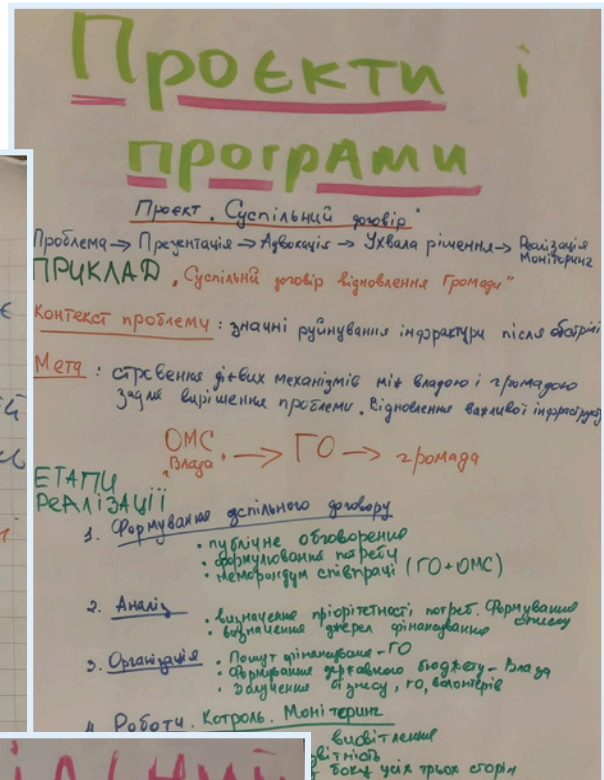 Проєкти і
програми
Проєкт "Суспільний договір"
Проблема → Презентація → Адвокація → Ухвала рішення → Реалізація
Моніторинг
ПРИКЛАД "Суспільний договір відновлення Громади"
Контекст проблему: значні руйнування інфрактури після обстрілі
Мета: ство­рення дієвих механізмів між владою і громадою
задля вирішення проблеми. Відновлення важливої інфраструк
ОМС → ГО → громада
"Влада"
ЕТАПИ
РЕАЛІЗАЦІЇ
1. Формування суспільного договору
• публічне обговорення
• формулювання потреб
• меморандум співпраці (ГО+ОМС)
2. Аналіз
• визначення пріорітетності потреб. Формування
• визначення джерел фінансування
3. Організація
• Пошук фінансування - ГО
• Формування державного бюджету - Влада
• Залучення бізнесу, ГО, волонтерів
4. Роботи. Котроль. Моніторинг
висвітлення
боку усіх трьох сторін